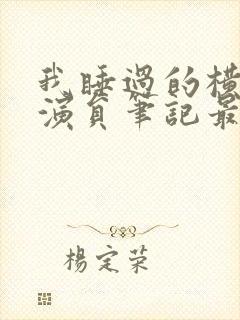 我睡過的橫
演員筆記最
楊定榮